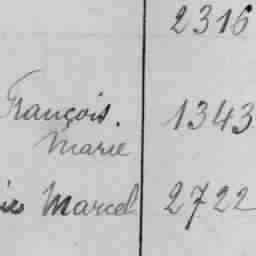 2316
François. 1343
Marie
Marcel 2722